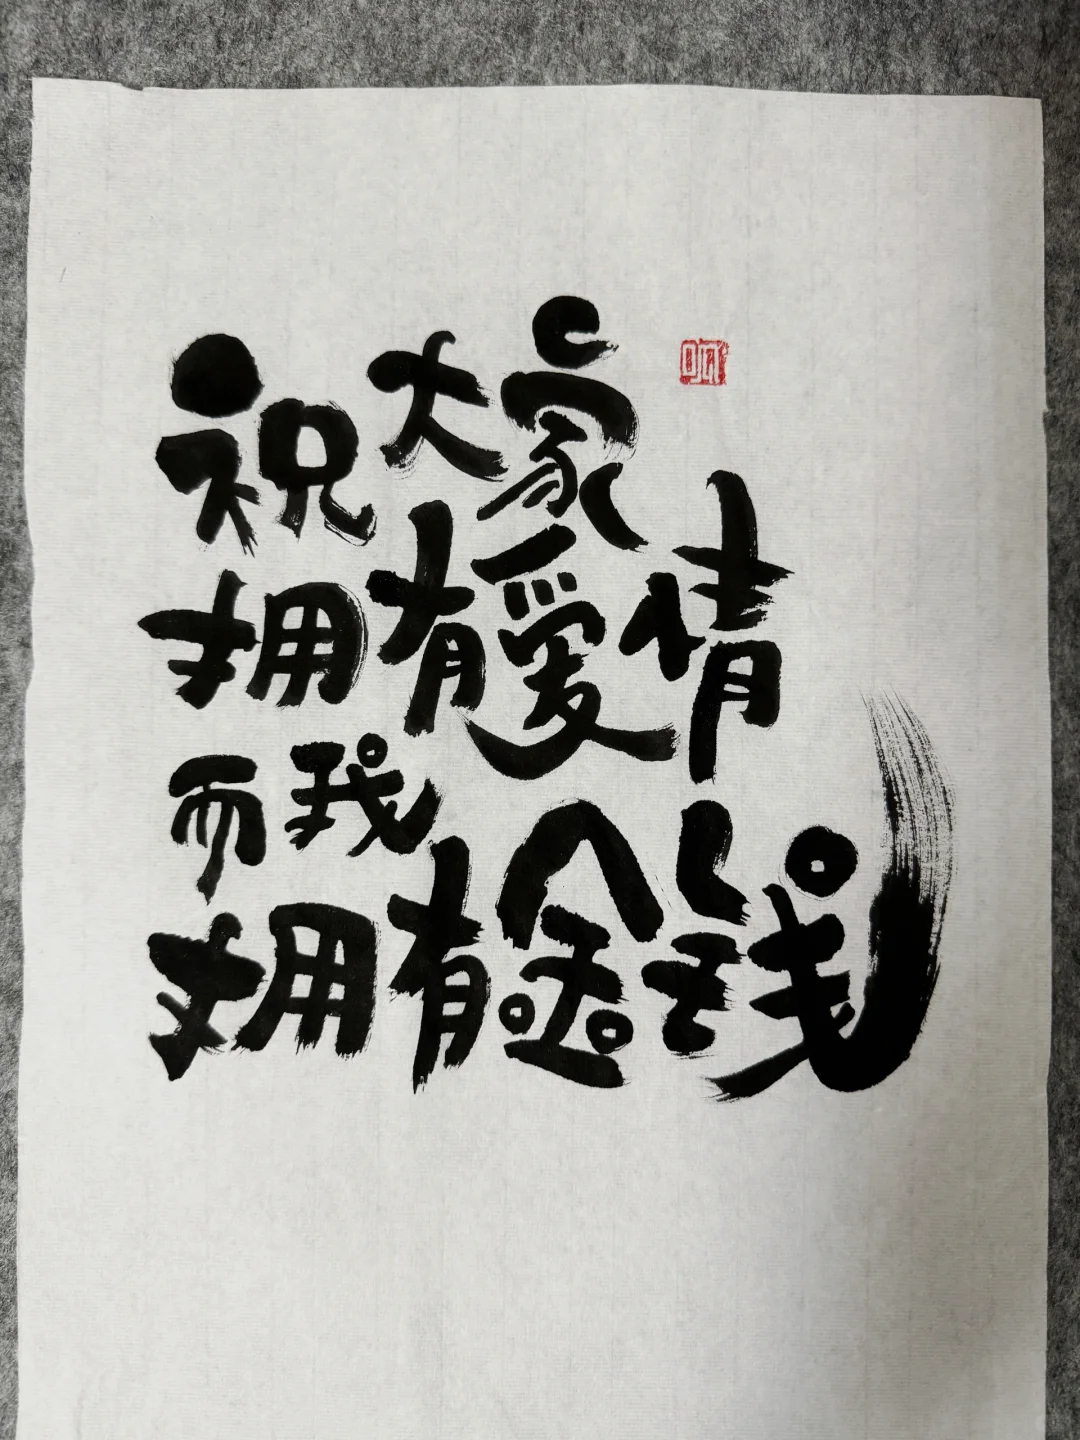 祝大家
拥有爱情
而我
拥有金钱